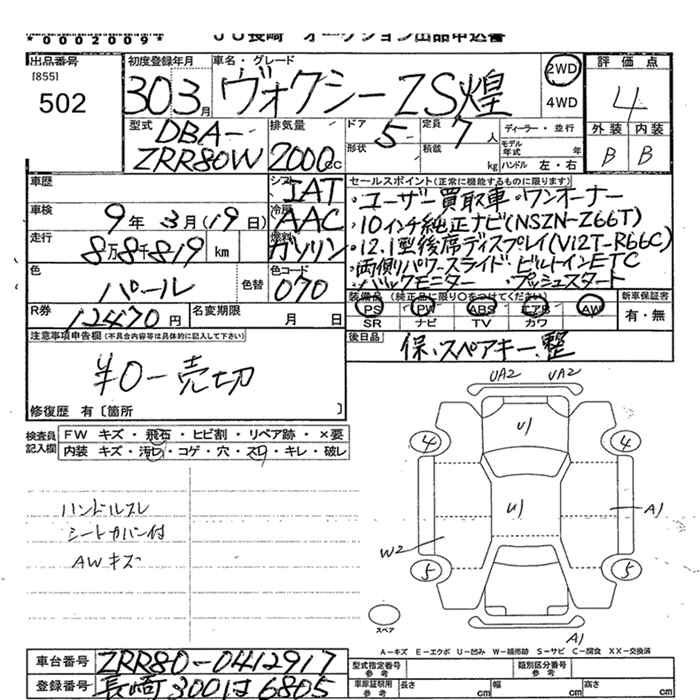 *0002009*
JU長崎 オークション出品申込書
出品番号
[855]
502
初度登録年月
303月
車名・グレード
ヴォクシー ZS煌
2WD
4WD
評価点
4
外装 内装
B B
型式
DBA-
ZRR80W
排気量
2000cc
ドア 5
形状
定員 7人
積載 kg
ディーラー・並行
モデル年式 年
ハンドル 左・右
車歴
シフト IAT
セールスポイント(正常に機能するものに限ります)
・ユーザー買取車・ワンオーナー
・10インチ純正ナビ(NSZN-Z66T)
・12.1型後席ディスプレイ(V12T-R66C)
・両側パワースライド・ビルトインETC
・バックモニター ・プッシュスタート
車検
9年3月(19日)
冷房 AAC
走行
8万8千819 km
燃料 ガソリン
色
パール
色替
色コード
070
R券
12470円
名変期限 月 日
装備品(純正品に限り○をつけてください)
PS PW ABS エアB AW
SR ナビ TV カワ
新車保証書
有・無
後日品
保、スペアキー、整
注意事項申告欄(不具合内容等は具体的に記入して下さい)
¥0-売切
修復歴 有〔箇所 〕
検査員
記入欄
FW キズ・飛石・ヒビ割・リペア跡・×要
内装 キズ・汚れ・コゲ・穴・スレ・キレ・破レ
ハンドルスレ
シートカバー付
AWキズ
UA2 UA2
U1
4 4
U1
A1
W2
5 5
スペア
A1
A-キズ E-エクボ U-凹み W-補修跡 S-サビ C-腐食 XX-交換済
車台番号
ZRR80-0412917
登録番号
長崎300は6805
型式指定番号
参考
類別区分番号
参考
車庫証明用
参考
長さ cm
幅 cm
高さ cm